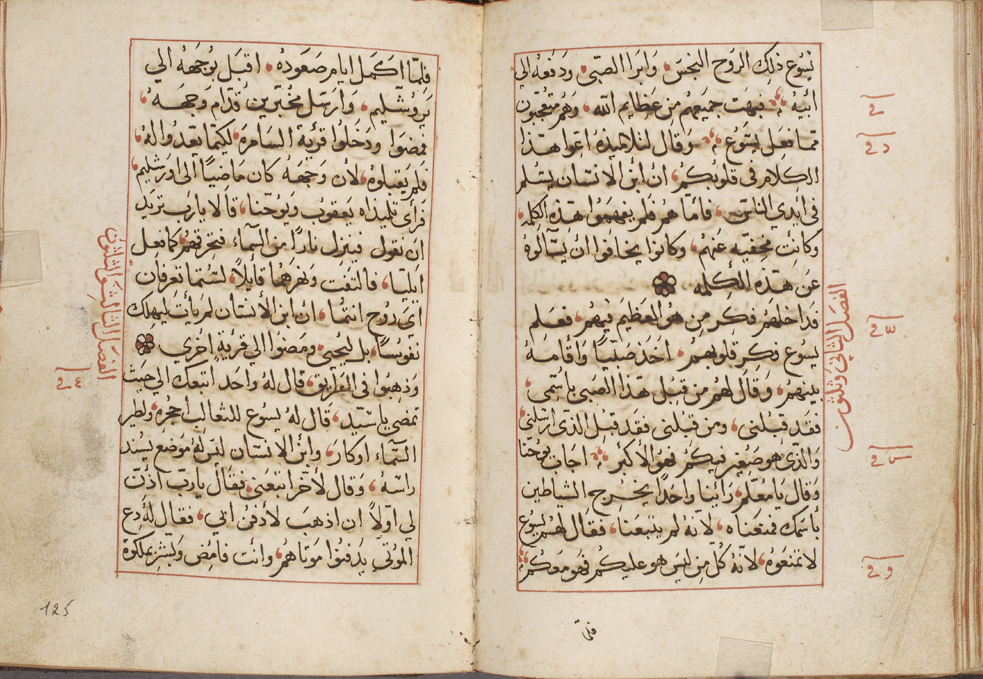 يسوع ذلك الروح النجس، وابرا الصبي، ودفعه الي
ابيه، فبهت جميعهم من عظايم الله، وهم متعجبون
مما فعل يسوع، وقال لتلاميذه اعوا هذا
الكلام في قلوبكم، ان ابن الانسان يسلم
في ايدي الناس، فأما هم فلم يفهموا هذه الكلمه
وكانت مخفيه عنهم، وكانوا يخافوا ان يسآلوه
عن هذه الكلمه
الفصل الثاني وثلثون
فداخلهم فكر من هو العظيم فيهم، فعلم
يسوع فكر قلوبهم، اخذ صبيًا واقامه
بينهم، وقال لهم من قبل هذا الصبي بأسمي،
فقد قبلني، ومن قبلني فقد قبل الذي ارسلني،
والذي هو صغير فيكم فهو الأكبر، اجاب يوحنا
وقال يا معلم، رأينا واحدًا يخرج الشاطين
بأسمك فمنعناه، لانه لم يتبعنا، فقال لهم يسوع
لا تمنعوه، لأنه كل من ليس هو عليكم فهو معكم
فلمّا
فلمّا اكمل ايام صعوده، اقبل بوجهه الي
يروشليم، وارسل مخبرين قدام وجهه،
فمضوا ودخلوا قرية السامره، لكيما يعدوا له،
فلم يقبلوه، لأن وجهه كان ماضيًا الي اورشليم،
فرأي تلميذاه يعقوب ويوحنا، قالا يا رب تريد
ان نقول فينزل نارًا من السمآء فتحرقهم، كما فعل
ايليا، فالتفت ونهرهما قايلًا، لستما تعرفان
اي روح انتما، ان ابن الأنسان لم يأت ليهلك
نفوسًا، بل ليحيي، ومضوا الي قرية اخري
الفصل الثالث والثلثون
وذهبوا في الطريق، قال له واحد اتبعك الي حيث
تمضي يا سيد، قال له يسوع للثعالب احجره، ولطير
السمآء اوكار، وابن الانسان ليس له موضع يسند
راسه، وقال لأخر اتبعني، فقال يا رب أذن
لي اولًا ان اذهب لأدفن ابي، فقال له دع
الموتي يدفنوا موتاهم، وانت فامض وبشر بملكوة
125